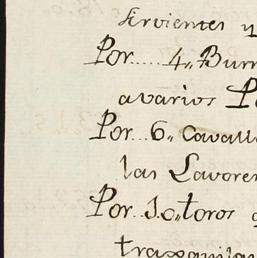 sirvientes y
Por..... 4,, Burr
avarios P
Por.. 6,, Cavall
las Lavore
Por.. 10,, toros
trasquila